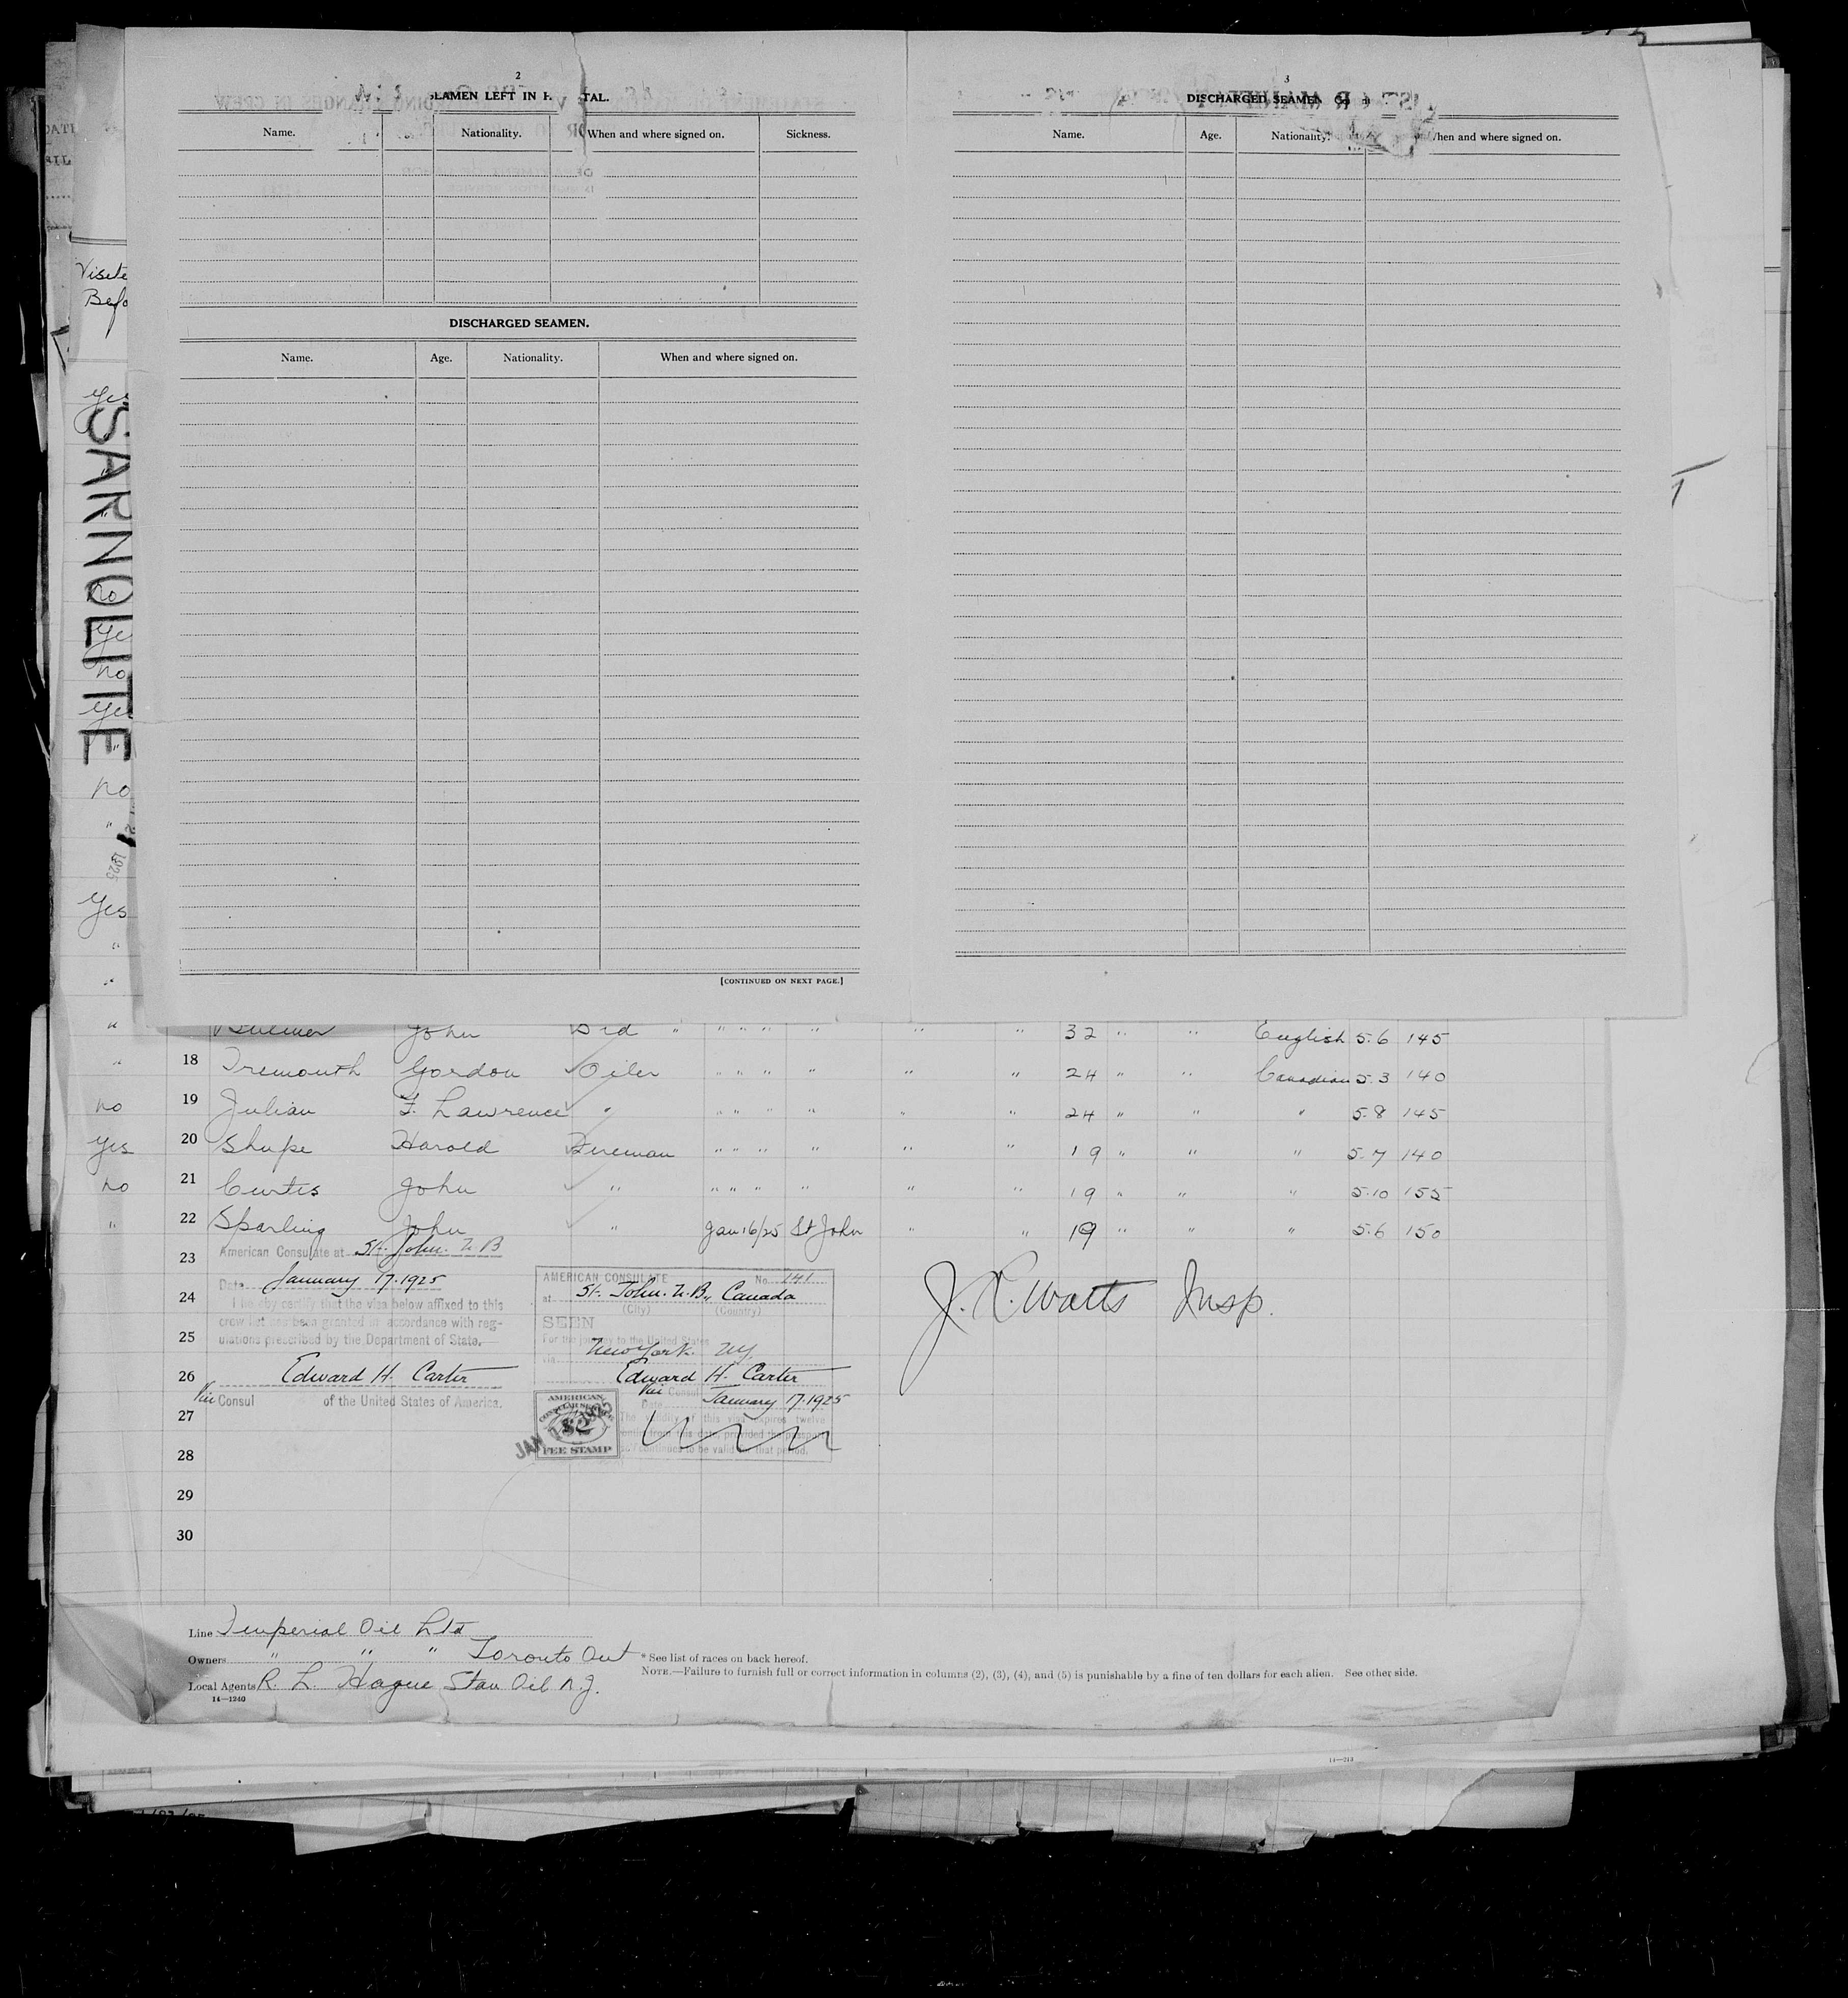 2
SEAMEN LEFT IN H TAL.
Name. Nationality. When and where signed on. Sickness.
DISCHARGED SEAMEN.
Name. Age. Nationality. When and where signed on.
[CONTINUED ON NEXT PAGE.]
3
DISCHARGED SEAMEN
Name. Age. Nationality. When and where signed on.
Visite
Befo
SARNOLITE
no
no
no
"
1925
Yes
"
"
" John 3rd " " " " " " " 32 " " English 5.6 145
" 18 Tremouth Gordon Oiler " " " " " " 24 " " Canadian 5.3 140
no 19 Julian F. Lawrence " " " " " " " 24 " " " 5.8 145
yes 20 Shupe Harold Fireman " " " " " " 19 " " " 5.7 140
no 21 Curtis John " " " " " " " 19 " " " 5.10 155
" 22 Sparling John " Jan 16/25 St John " " 19 " " " 5.6 150
23 American Consulate at St. John. N B
Date January 17. 1925
24 I hereby certify that the visa below affixed to this
crew list has been granted in accordance with reg-
25 ulations prescribed by the Department of State.
26 Edward H. Carter
Vice Consul of the United States of America.
27
28
29
30
AMERICAN CONSULATE No. 141
at St. John. N. B., Canada
(City) (Country)
SEEN
For the journey to the United States
via New York. NY.
Edward H. Carter
Vice Consul
Date January 17. 1925
The validity of this visa expires twelve
months from this date, provided the passport
continues to be valid for that period.
AMERICAN
CONSULAR SERVICE
$2
FEE STAMP
JAN 17 1925
J. R. Watts Insp.
Line Imperial Oil Ltd
Owners " " " Toronto Ont
Local Agents R. L. Hague Stan Oil N.J.
14—1240
* See list of races on back hereof.
NOTE.—Failure to furnish full or correct information in columns (2), (3), (4), and (5) is punishable by a fine of ten dollars for each alien. See other side.
14—213